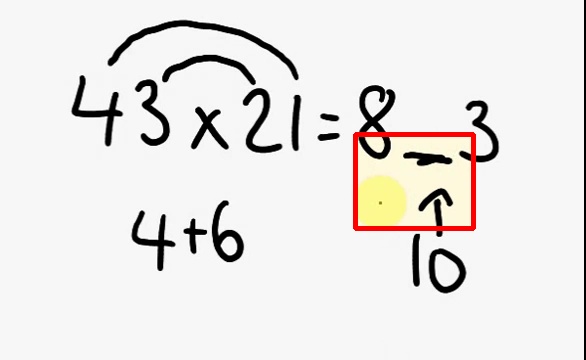 43 x 21 = 8 _ 3
4+6
10